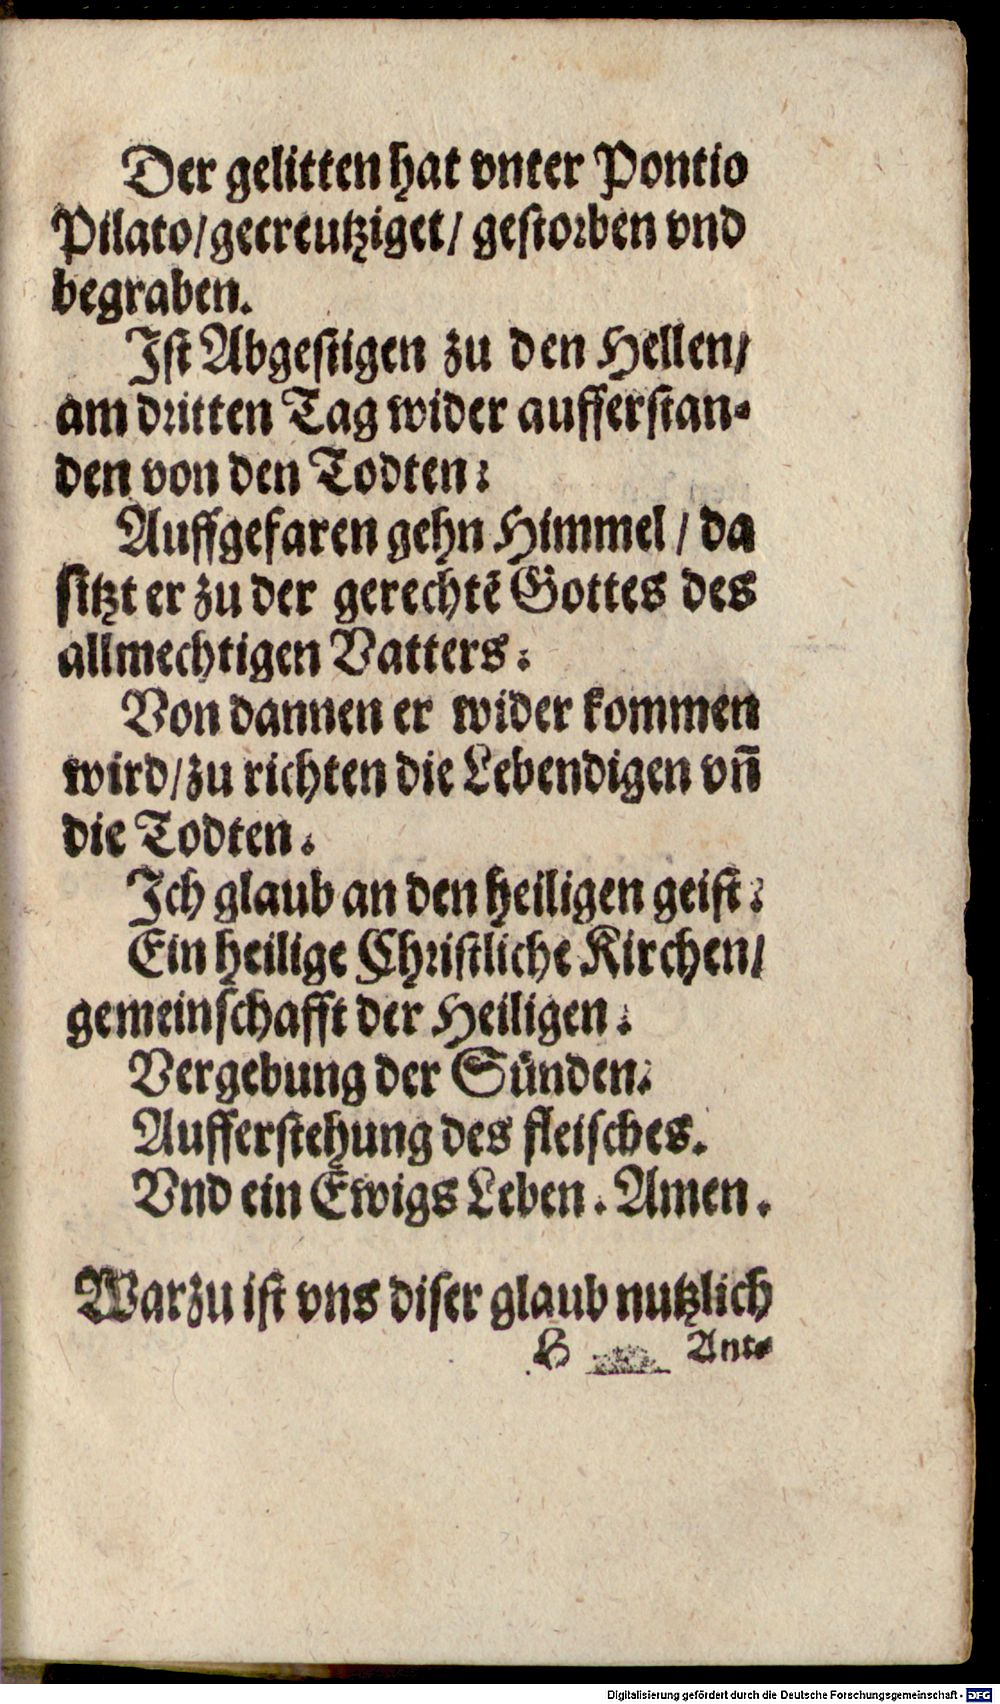 Der gelitten hat vnter Pontio
Pilato/gecreutziget/ gestorben vnd
begraben.
Ist Abgestigen zu den Hellen/
am dritten Tag wider aufferstan-
den von den Todten:
Auffgefaren gehn Himmel / da
sitzt er zu der gerechtē Gottes des
allmechtigen Vatters:
Von dannen er wider kommen
wird/zu richten die Lebendigen vn̄
die Todten.
Ich glaub an den heiligen geist:
Ein heilige Christliche Kirchen/
gemeinschafft der Heiligen:
Vergebung der Sünden:
Aufferstehung des fleisches.
Vnd ein Ewigs Leben. Amen.
Warzu ist vns diser glaub nutzlich
Ant-
Digitalisierung gefördert durch die Deutsche Forschungsgemeinschaft - DFG